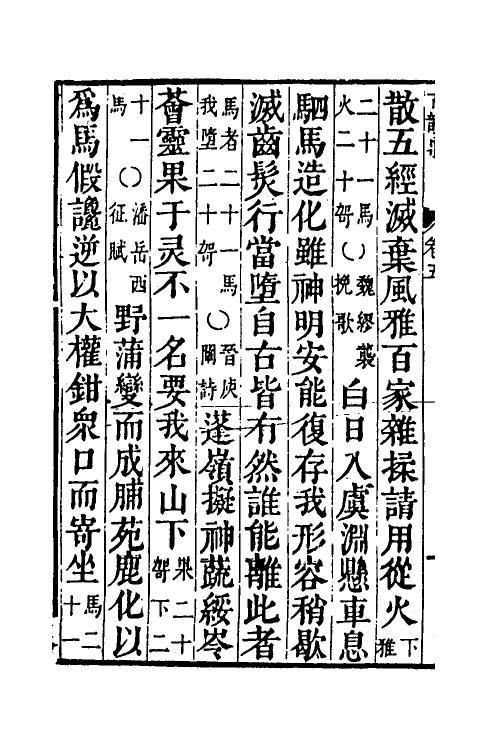 散五經滅棄風雅百家雜揉請用從火下雅
二十一馬火二十哿〇魏繆襲挽歌白日入虞淵懸車息
駟馬造化雖神明安能復存我形容稍歇
滅齒髮行當墮自古皆有然誰能離此者
馬者二十一馬我墮二十哿〇晉庾闡詩蓬嶺擬神蔬綏岑
薈靈果于灵不一名要我來山下果二十哿下二
十一馬〇潘岳西征賦野蒲變而成脯苑鹿化以
爲馬假讒逆以大權鉗衆口而寄坐馬二十一
卷五